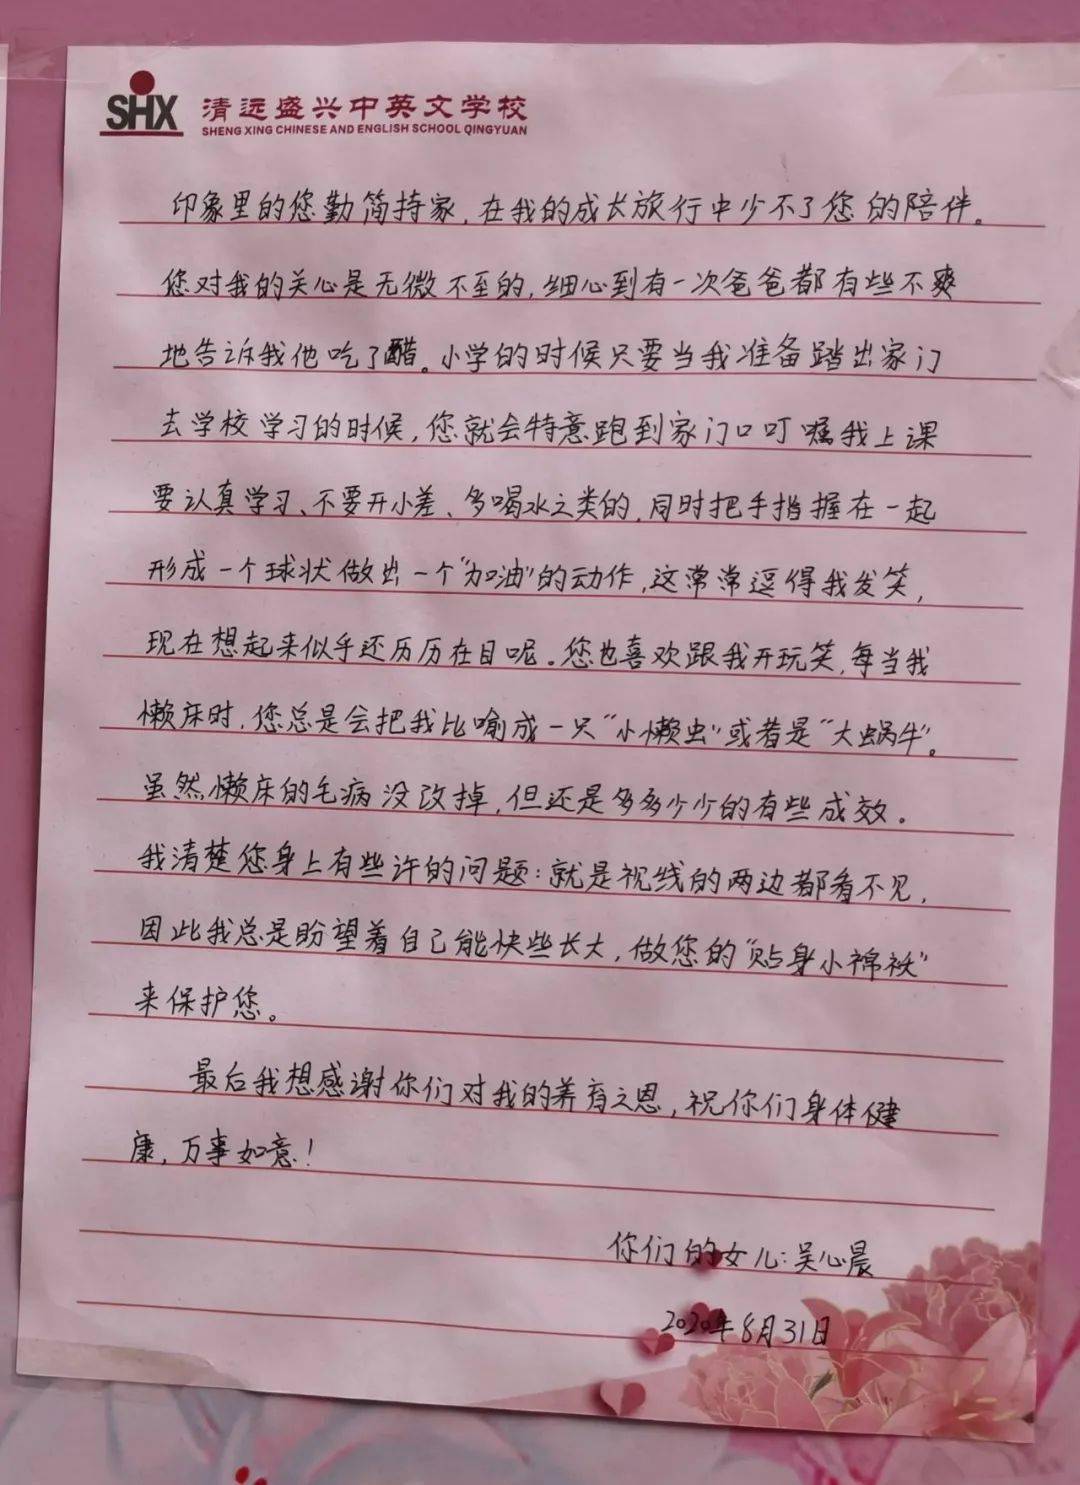 SHX 清远盛兴中英文学校
SHENG XING CHINESE AND ENGLISH SCHOOL QINGYUAN
印象里的您勤简持家，在我的成长旅行中少不了您的陪伴。
您对我的关心是无微不至的，细心到有一次爸爸都有些不爽
地告诉我他吃了醋。小学的时候只要当我准备踏出家门
去学校学习的时候，您就会特意跑到家门口叮嘱我上课
要认真学习、不要开小差、多喝水之类的，同时把手指握在一起
形成一个球状做出一个“加油”的动作，这常常逗得我发笑，
现在想起来似乎还历历在目呢。您也喜欢跟我开玩笑，每当我
懒床时，您总是会把我比喻成一只“小懒虫”或者是“大蜗牛”。
虽然懒床的毛病没改掉，但还是多多少少的有些成效。
我清楚您身上有些许的问题：就是视线的两边都看不见，
因此我总是盼望着自己能快些长大，做您的“贴身小棉袄”
来保护您。
最后我想感谢你们对我的养育之恩，祝你们身体健
康，万事如意！
你们的女儿：吴心晨
2020年8月31日